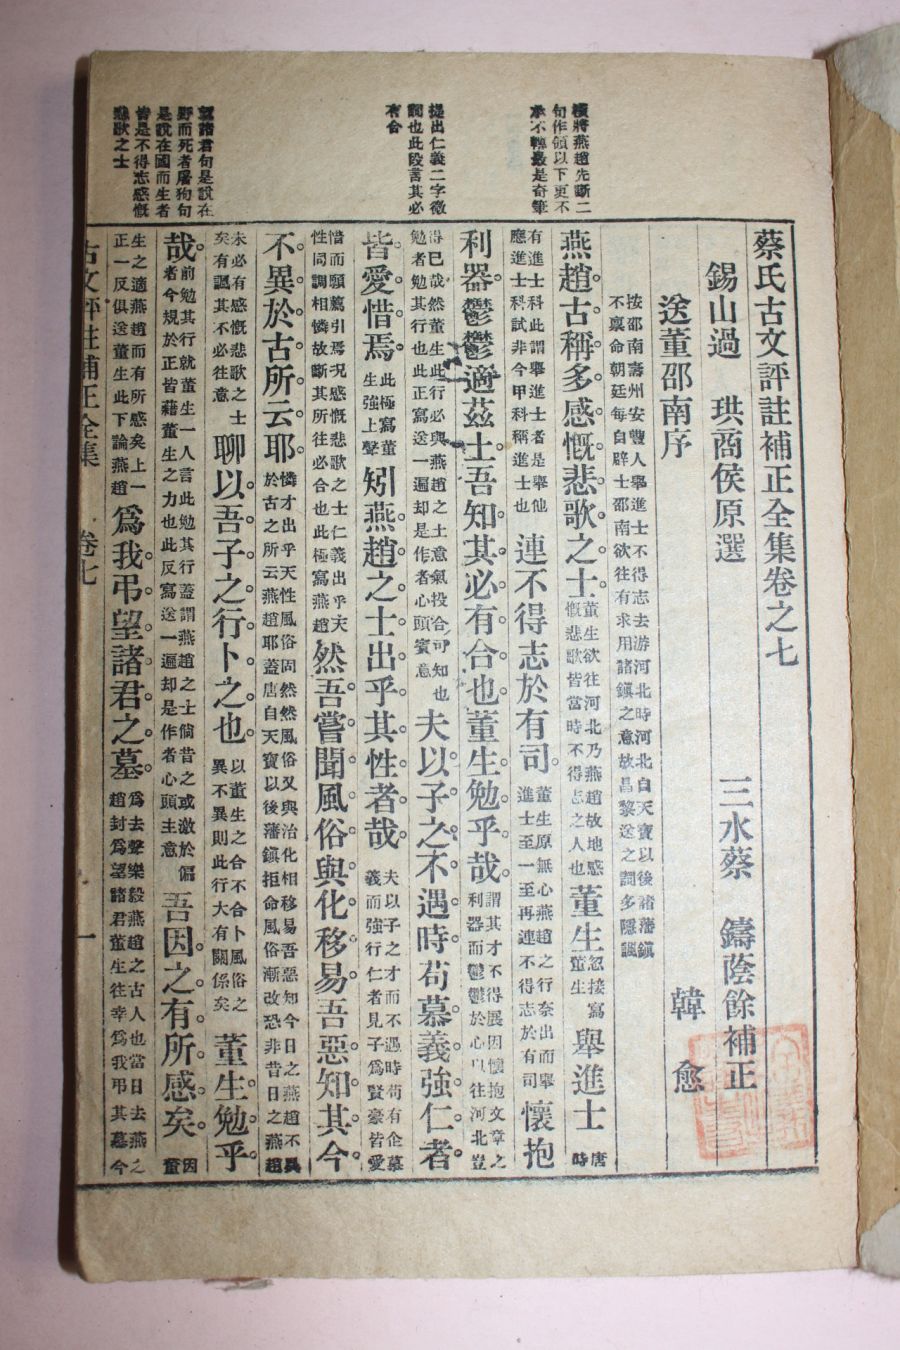 橫將燕趙先斷二
句作領以下更不
承不轉最是奇筆
提出仁義二字徵
詞也此段言其必
有合
望諸君句是說在
野而死者屠狗句
是說在國而生者
皆是不得志感慨
悲歌之士
蔡氏古文評註補正全集卷之七
錫山過 珙商侯原選 三水蔡 鑄蔭餘補正
送董邵南序 韓 愈
按邵南壽州安豐人舉進士不得志去游河北時河北自天寶以後諸藩鎮
不稟命朝廷每自辟士邵南欲往有求用諸鎮之意故昌黎送之詞多隱諷
燕趙古稱多感慨悲歌之士董生欲往河北乃燕趙故地感慨悲歌皆當時不得志之人也董生忽接寫董生舉進士唐時
有進士科此謂舉進士者是舉他應進士科試非今甲科稱進士也連不得志於有司董生原無心燕趙之行奈出而舉進士至一至再連不得志於有司懷抱
利器鬱鬱適茲土吾知其必有合也董生勉乎哉謂其才不得展因懷抱文章之利器而鬱鬱於心以往河北豈
得已哉然董生此行必與燕趙之士意氣投合可知也勉者勉其行也此正寫送一遍却是作者心頭賓意夫以子之不遇時苟慕義強仁者
皆愛惜焉此極寫董生強上聲矧燕趙之士出乎其性者哉夫以子之才而不遇時苟有企慕義而強行仁者見子爲賢豪皆愛
惜而願薦引焉況感慨悲歌之士仁義出乎天性同調相憐故斷其所往必合也此極寫燕趙然吾嘗聞風俗與化移易吾惡知其今
不異於古所云耶憐才出乎天性風俗固然然風俗又與治化相移易吾惡知今日之燕趙不異於古之所云燕趙耶蓋唐自天寶以後藩鎮拒命風俗漸改恐非昔日之燕趙
矣有諷其不必往意未必有感慨悲歌之士聊以吾子之行卜之也以董生之合不合卜風俗之異不異則此行大有關係矣董生勉乎
哉前勉其行就董生一人言此勉其行蓋謂燕趙之士倘昔之或激於偏者今規於正皆藉董生之力也此反寫送一遍却是作者心頭主意吾因之有所感矣因董
生之適燕趙而有所感矣上一正一反俱送董生此下論燕趙爲我弔望諸君之墓爲去聲樂毅燕趙之古人也當日去燕之趙封爲望諸君董生往幸爲我弔其墓今
古文評註補正全集 卷七 一